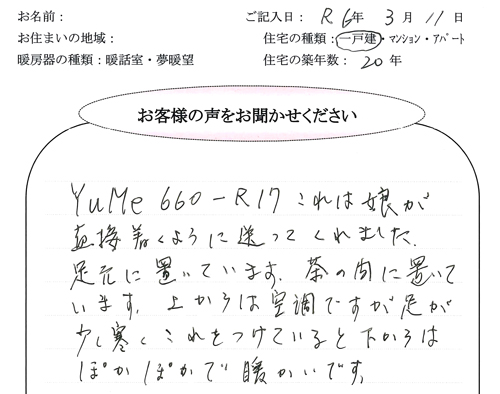 お名前：
ご記入日：R6年 3月 11日
お住まいの地域：
住宅の種類：一戸建・マンション・アパート
暖房器の種類：暖話室・夢暖望
住宅の築年数：20年
お客様の声をお聞かせください
YuMe 660-R17 これは娘が
直接着くように送ってくれました.
足元に置いています. 茶の間に置いて
います. 上からは空調ですが足が
少し寒く これをつけていると下からは
ぽかぽかで暖かいです.